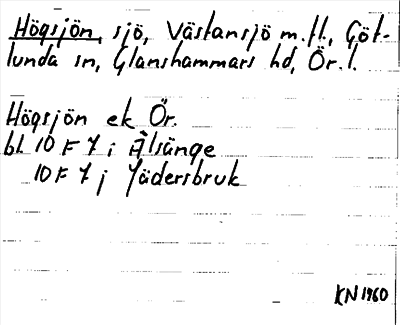 Högsjön, sjö, Västansjö m.fl., Göt-
lunda sn, Glanshammars hd, Ör. l.
Högsjön ek Ör.
bl. 10 F 7 i Älsänge
10 F 7 j Jädersbruk
KN 1960